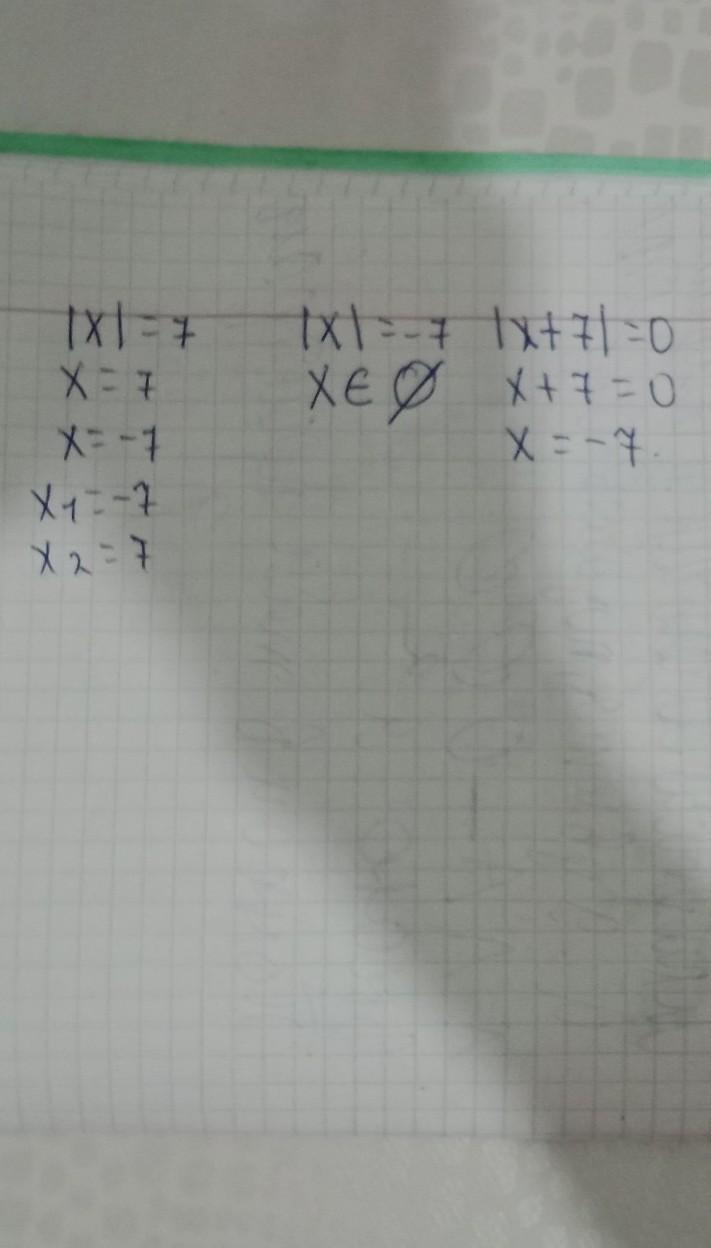 |x| = 7
x = 7
x = -7
x1 = -7
x2 = 7
|x| = -7
x ∈ ∅
|x + 7| = 0
x + 7 = 0
x = -7.